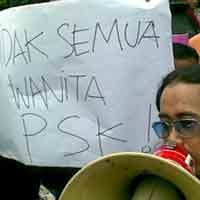 TIDAK SEMUA
WANITA
PSK!